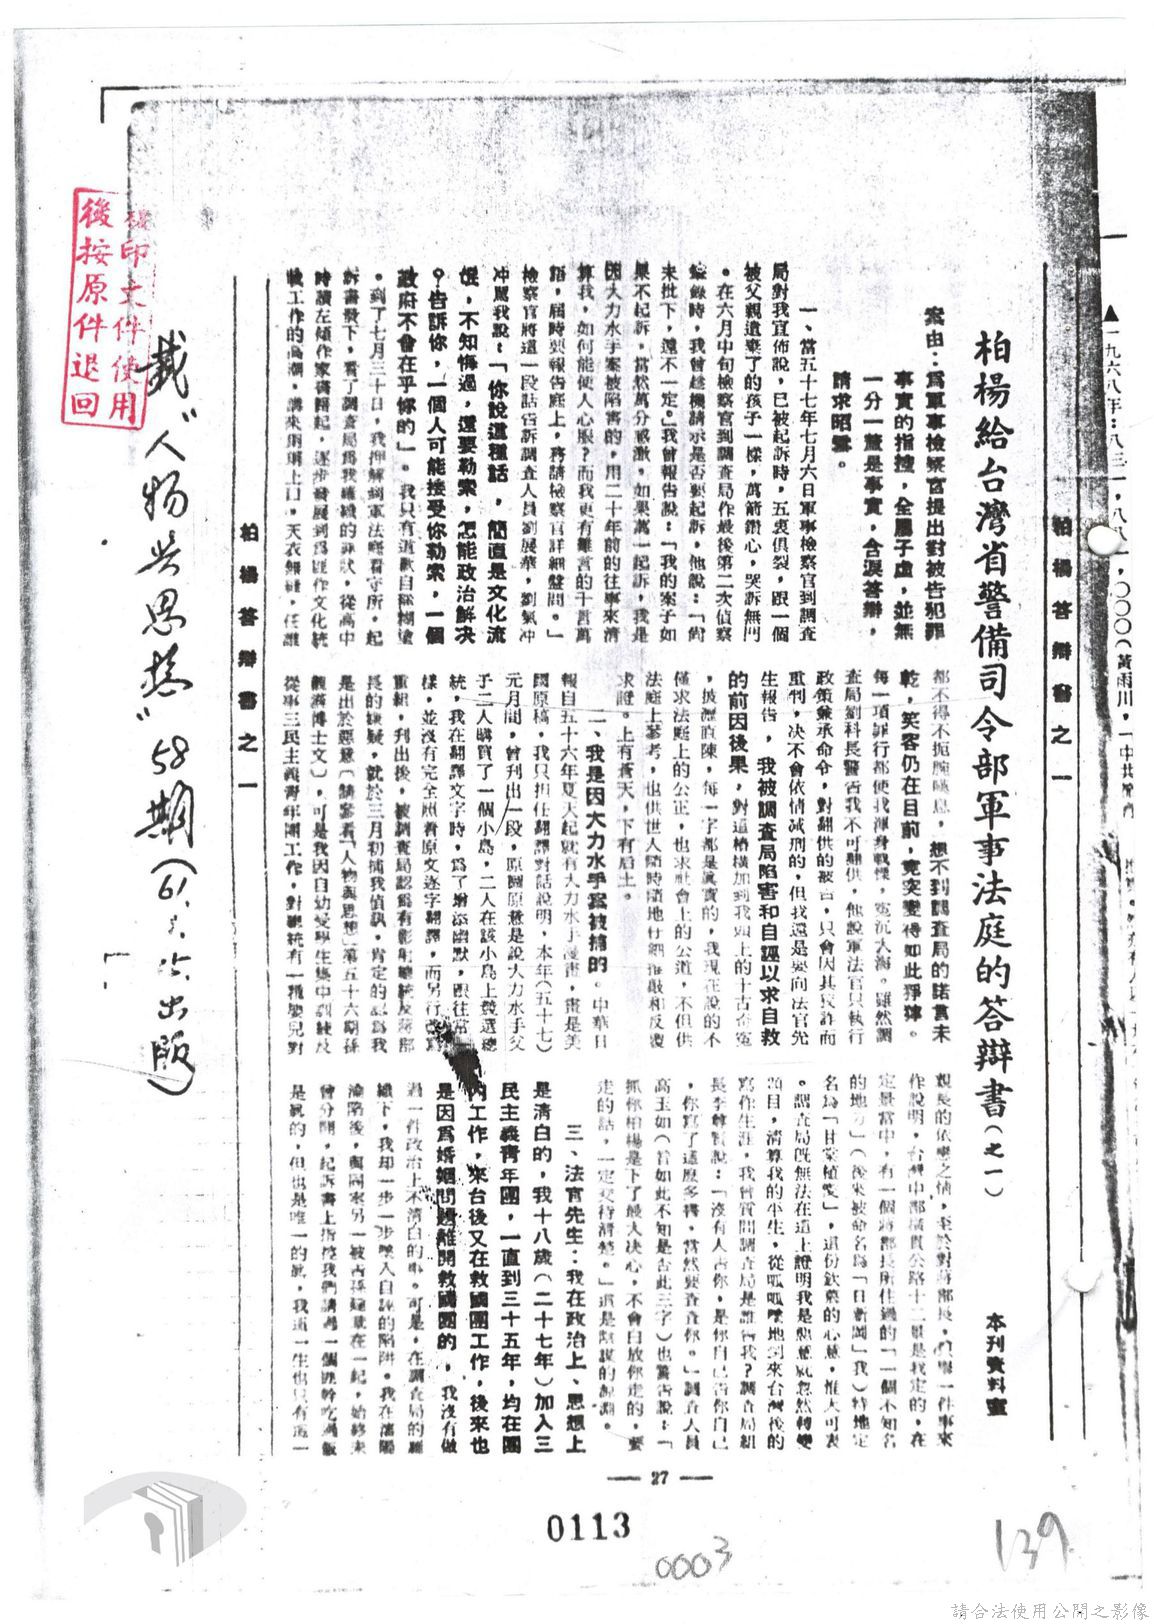 柏楊給台灣省警備司令部軍事法庭的答辯書(之一)
本刊資料室
案由：為軍事檢察官提出對被告犯罪
事實的指控，全屬子虛，並無
一分一釐是事實，含淚答辯，
請求昭雪。
一、當五十七年七月六日軍事檢察官到調查
局對我宣佈說，已被起訴時，五衷俱裂，跟一個
被父親遺棄了的孩子一樣，萬箭鑽心，哭訴無門
。在六月中旬檢察官到調查局作最後第二次偵察
錄時，我曾趁機請示是否要起訴，他說：「尚
未批下，還不一定。」我曾報告說：「我的案子如
果不起訴，當然萬分感激，如果萬一起訴，我是
因大力水手案被陷害的，用二十年前的往事來清
算我，如何能使人心服？而我更有難言的千言萬
語，屆時要報告庭上，務請檢察官詳細盤問。」
檢察官將這一段話告訴調查人員劉展華，劉氣沖
沖罵我說：「你說這種話，簡直是文化流
氓，不知悔過，還要勒索，怎能政治解決
？告訴你，一個人可能接受你勒索，一個
政府不會在乎你的」。我只有道歉自陳糊塗
。到了七月三十日，我押解到軍法處看守所，起
訴書發下，看了調查局為我羅織的罪狀，從高中
時讀左傾作家書籍起，逐步發展到為匪作文化統
戰工作的高潮，講來頭頭上口，天衣無縫，任誰
都不得不扼腕嘆息，想不到調查局的諾言未
乾，笑容仍在目前，竟突變得如此猙獰。
每一項罪行都使我渾身戰慄，冤沉大海。雖然調
查局劉科長警告我不可翻供，他說軍法官只執行
政策兼承命令，對翻供的被告，只會因其長詐而
重判，決不會依情減刑的，但我還是要向法官先
生報告，我被調查局陷害和自誣以求自救
的前因後果，對這樁橫加到我頭上的千古奇冤
，披瀝直陳，每一字都是真實的，我現在說的不
僅求法庭上的公正，也求社會上的公道，不但供
法庭上參考，也供世人隨時隨地仔細推敲和反覆
求證。上有蒼天，下有后土。
二、我是因大力水手案被捕的。中華日
報自五十六年夏天起就有大力水手漫畫，畫是美
國原稿，我只担任翻譯對話說明，本年(五十七)
元月間，曾刊出一段，原圖原意是說大力水手父
子二人購買了一個小島，二人在該小島上競選總
統，我在翻譯文字時，為了增添幽默，跟往常
樣，並沒有完全照着原文逐字翻譯，而另行
重組，刊出後，被調查局認為有影射總統及蔣部
長的嫌疑，就於三月初捕我偵訊，肯定的認為我
是出於惡意(請參看「人物與思想」第五十六期孫
觀漢博士文)，可是我因自幼受學生集中訓練及
從事三民主義青年團工作，對總統有一種嬰兒對
親長的依戀之情，至於對蔣部長，只舉一件事來
作說明，台灣中部橫貫公路十二景是我定的，在
定景當中，有一個蔣部長所住過的「一個不知名
的地方」(後來被命名為「日新岡」)我特地定
名為「甘棠植愛」，這份欽慕的心意，惟天可表
。調查局既無法在這上證明我是惡意就忽然轉變
題目，清算我的半生，從呱呱墜地到來台灣後的
寫作生涯，我曾質問調查局是誰告我？調查局組
長李尊賢說：「沒有人告你，是你自己告你自己
，你寫了這麼多書，當然要查查你。」調查人員
高玉如(音如此不知是否此三字)也警告說：「
抓你柏楊是下了最大決心，不會白放你走的，要
走的話，一定交待清楚。」這是陰謀的淵源。
三、法官先生：我在政治上、思想上
是清白的，我十八歲(二十七年)加入三
民主義青年團，一直到三十五年，均在團
內工作，來台後又在救國團工作，後來也
是因為婚姻問題離開救國團的，我沒有做
過一件政治上不清白的事。可是，在調查局的羅
織下，我却一步一步墜入自誣的陷阱。我在瀋陽
淪陷後，與同來另一被告孫建章在一起，始終未
曾分開，起訴書上指控我們請過一個匪幹吃過飯
是真的，但也是唯一的真，我這一生也只有這一
柏楊答辯書之一
柏楊答辯書之一
▲一九六八年：八三一，八八一，〇〇〇(黃雨川，「中共
複印文件使用
後按原件退回
載"人物與思想"58期(61.
出版)
— 27 —
0113
0003
139
請合法使用公開之影像